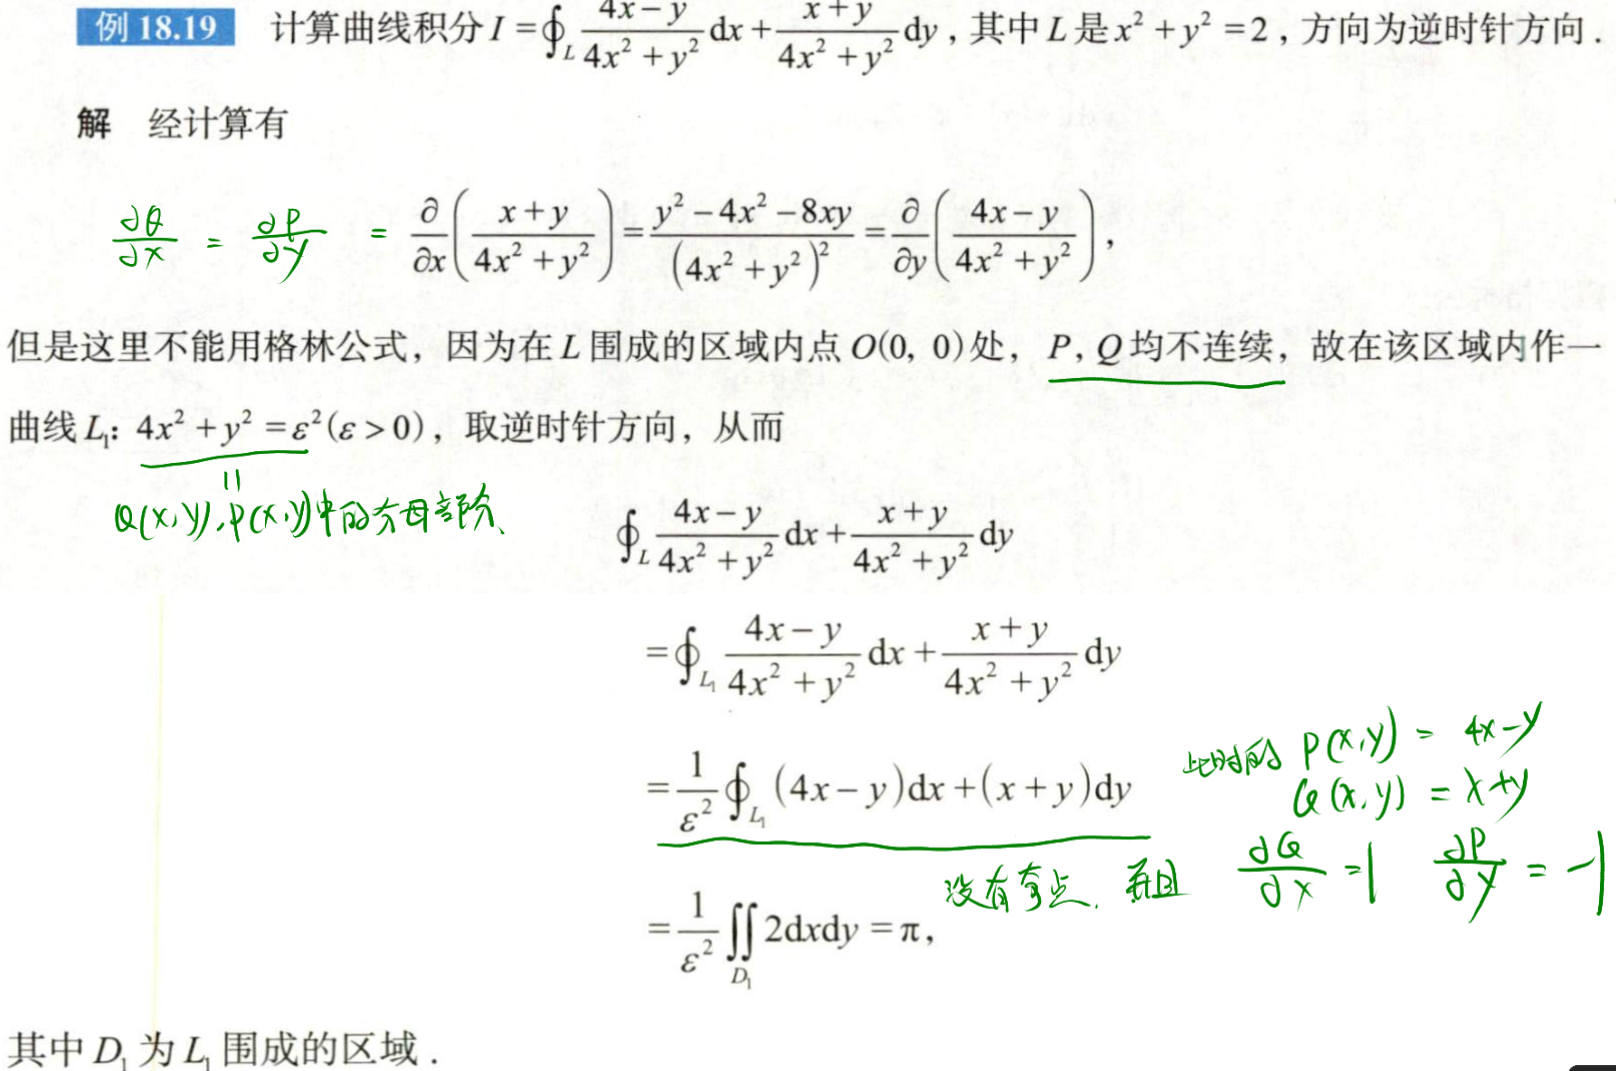 例 18.19 计算曲线积分 I = ∮_L (4x－y)/(4x²+y²) dx + (x+y)/(4x²+y²) dy, 其中 L 是 x²+y²=2, 方向为逆时针方向.
解 经计算有
∂Q/∂x = ∂P/∂y = ∂/∂x((x+y)/(4x²+y²)) = (y²－4x²－8xy)/(4x²+y²)² = ∂/∂y((4x－y)/(4x²+y²)),
但是这里不能用格林公式, 因为在 L 围成的区域内点 O(0, 0)处, P, Q 均不连续, 故在该区域内作一
曲线 L₁: 4x²+y²=ε²(ε>0), 取逆时针方向, 从而
||
Q(x,y),P(x,y)中的分母部分、
∮_L (4x－y)/(4x²+y²) dx + (x+y)/(4x²+y²) dy
= ∮_L₁ (4x－y)/(4x²+y²) dx + (x+y)/(4x²+y²) dy
= 1/ε² ∮_L₁ (4x－y)dx+(x+y)dy
此时的 P(x,y) = 4x-y
Q(x,y) = x+y
没有奇点. 并且 ∂Q/∂x = 1 ∂P/∂y = -1
= 1/ε² ∬_D₁ 2dxdy = π,
其中 D₁ 为 L₁ 围成的区域.